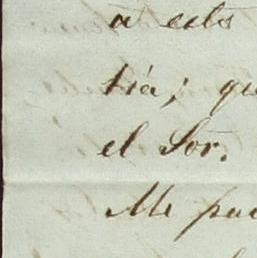 a esto
tiá; qu
el Sor.
Me pa